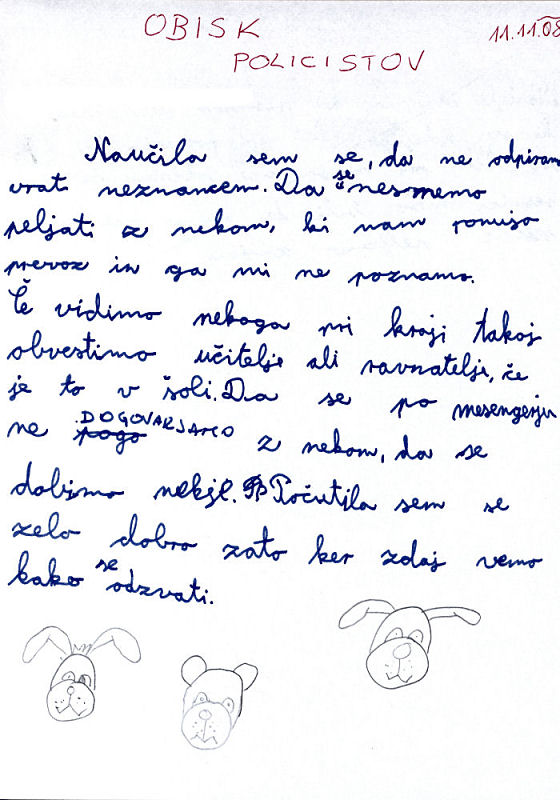 OBISK
11.11.08
POLICISTOV
Naučila sem se, da ne odpiram
vrat neznancem. Da se nesmemo
peljati z nekom, ki nam ponujo
prevoz in ga mi ne poznamo.
Če vidimo nekoga pri kraji takoj
obvestimo učitelje ali ravnatelje, če
je to v šoli. Da se po mesengerju
ne DOGOVARJAMO z nekom, da se
dobimo nekje. Počutila sem se
zelo dobro zato ker zdaj vemo
kako se odzvati.